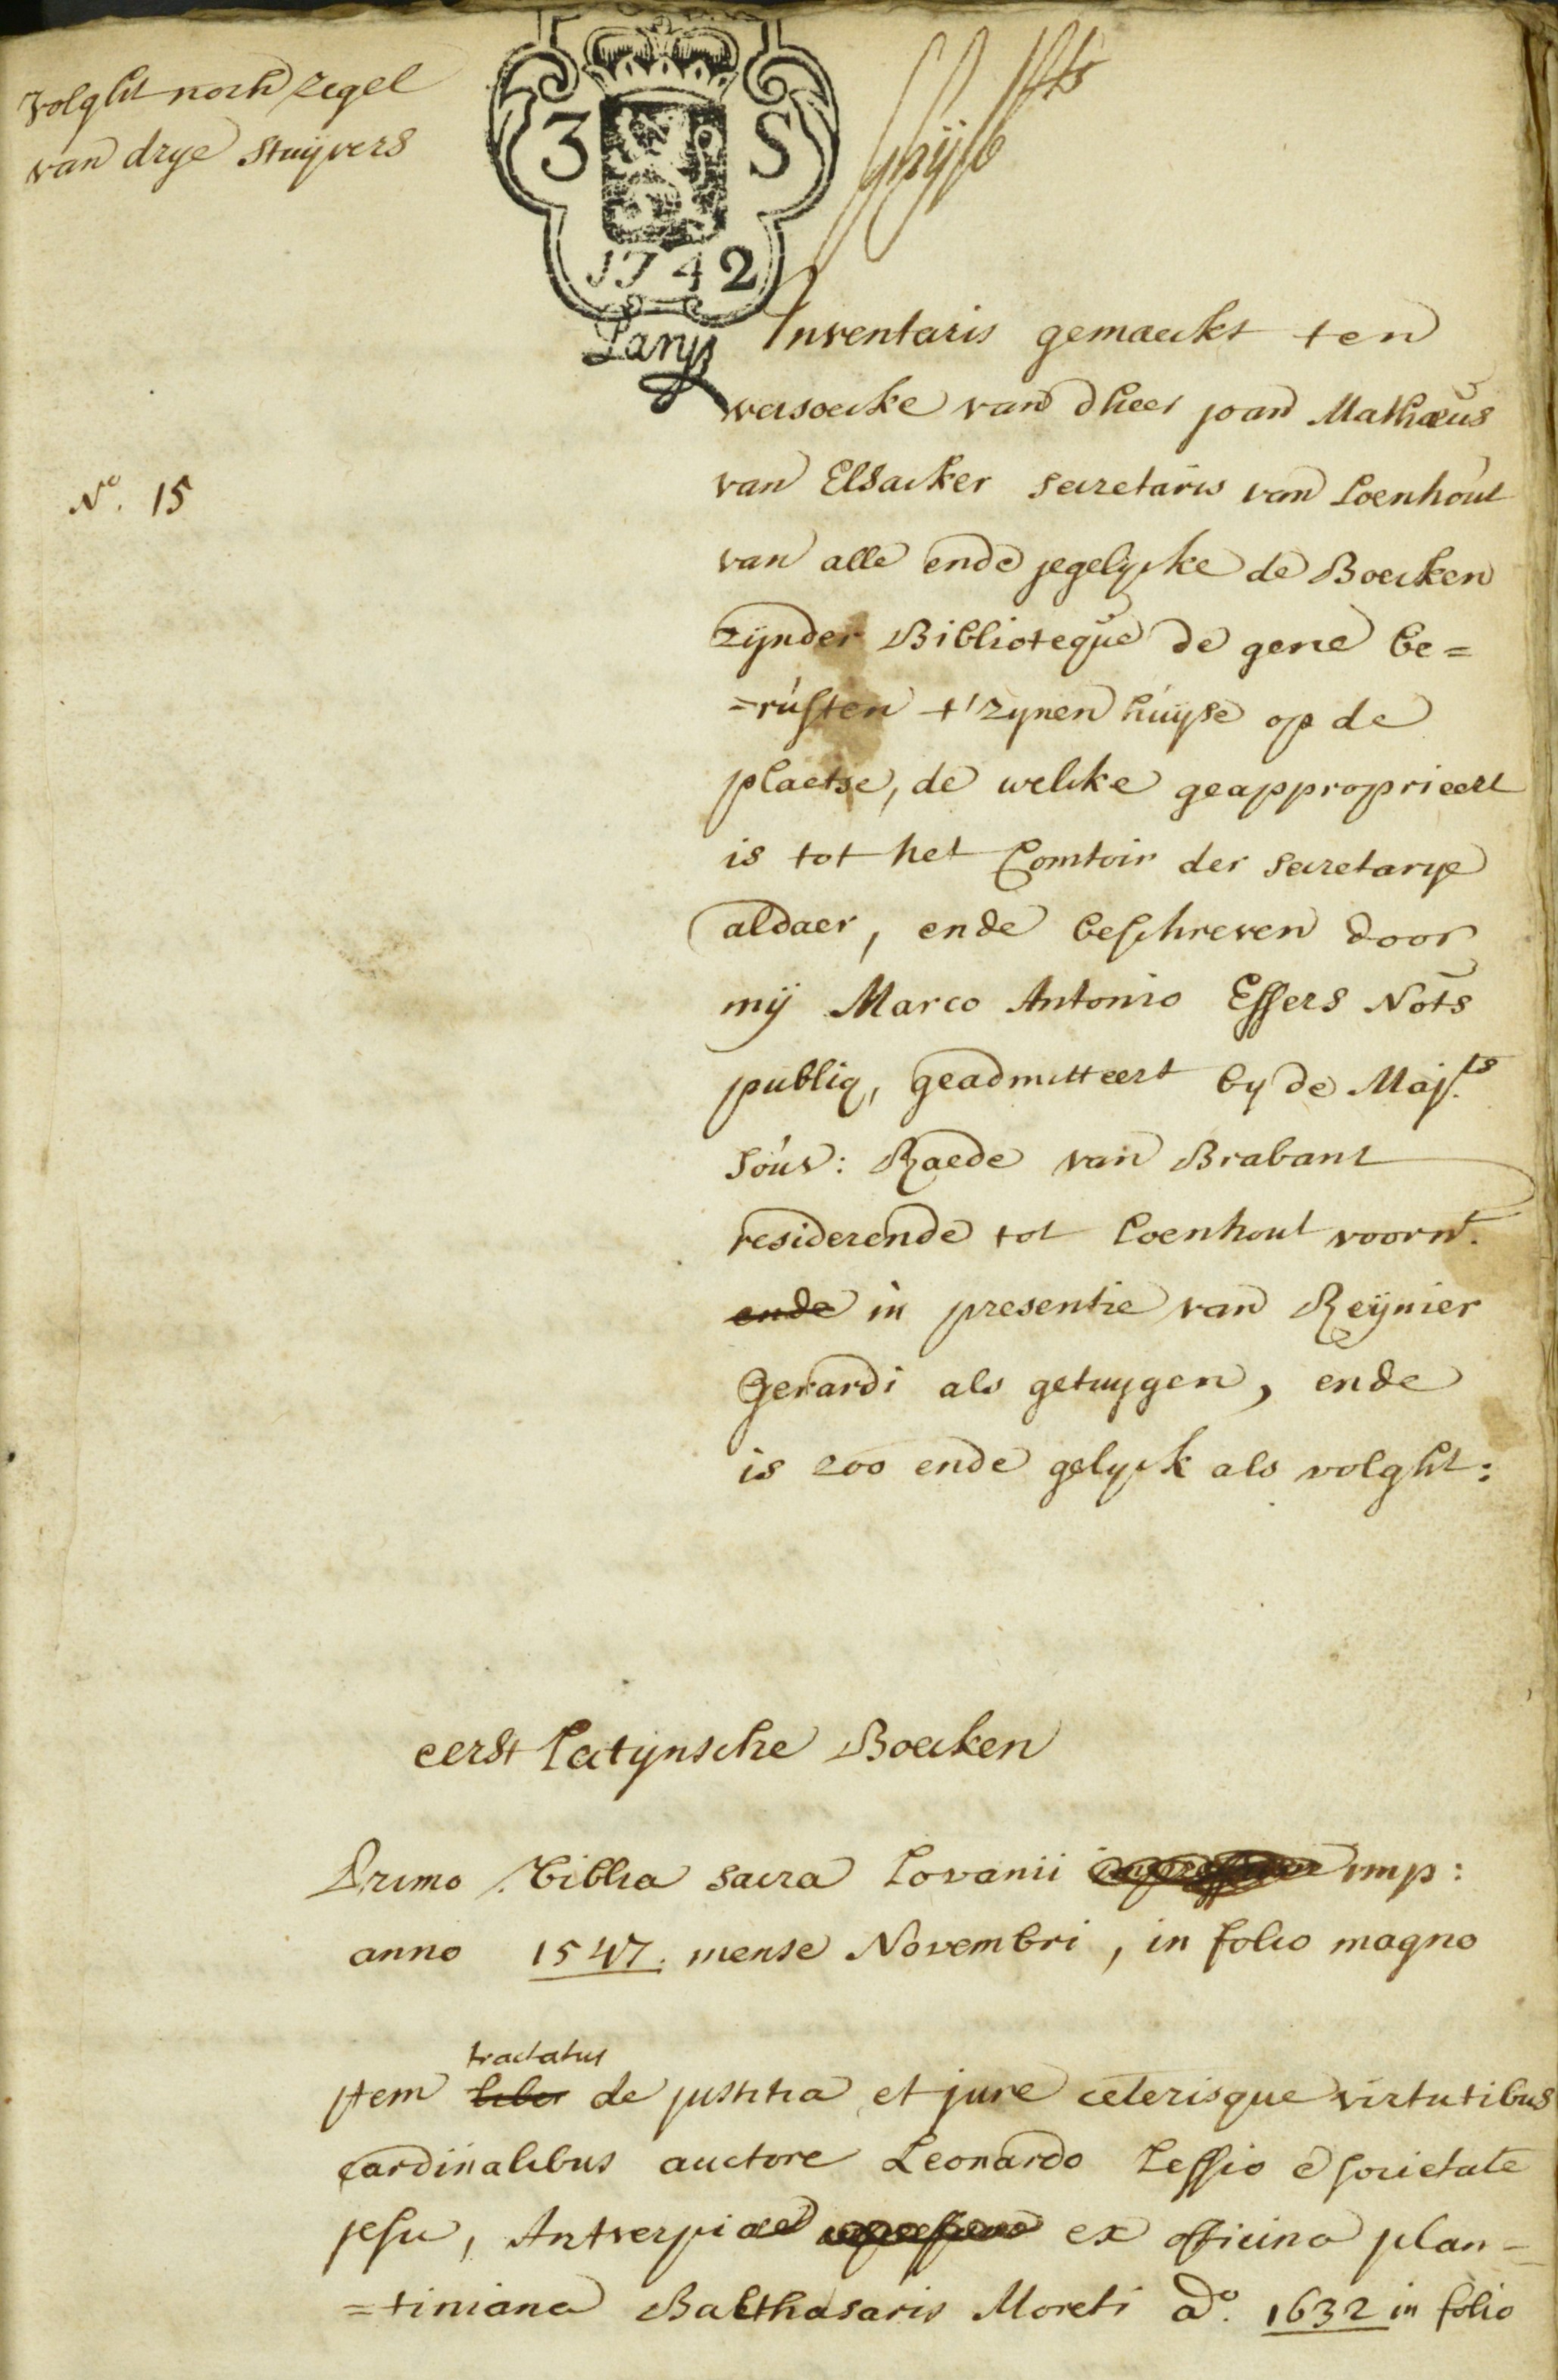 volght noch zegel
van drye stuijvers
3 S
1742
N.º 15
Inventaris gemaeckt ten
versoecke van dheer joan Mathæus
van Elsacker secretaris van Loenhout
van alle ende jegelycke de Boecken
zijnder Biblioteque de gene be=
=rusten t'zynen huijse op de
plaetse, de welcke geapproprieert
is tot het Comtoir der secretarye
aldaer, ende beschreven door
mij Marco Antonio Essers Nots
publiq, geadmitteert by de Maj.ts
Souv: Raede van Brabant
residerende tot Loenhout voorn.t
ende in presentie van Reijnier
Gerardi als getuygen, ende
is zoo ende gelyck als volght:
eerst Latijnsche Boecken
Primo Biblia sacra Lovanii imp:
anno 1547. mense Novembri, in folio magno
tractatus
jtem liber de justitia et jure ceterisque virtutibus
cardinalibus auctore Leonardo Lessio è societate
jesu, Antverpiae ex officina plan=
=tiniana Balthasaris Moreti aº. 1632 in folio